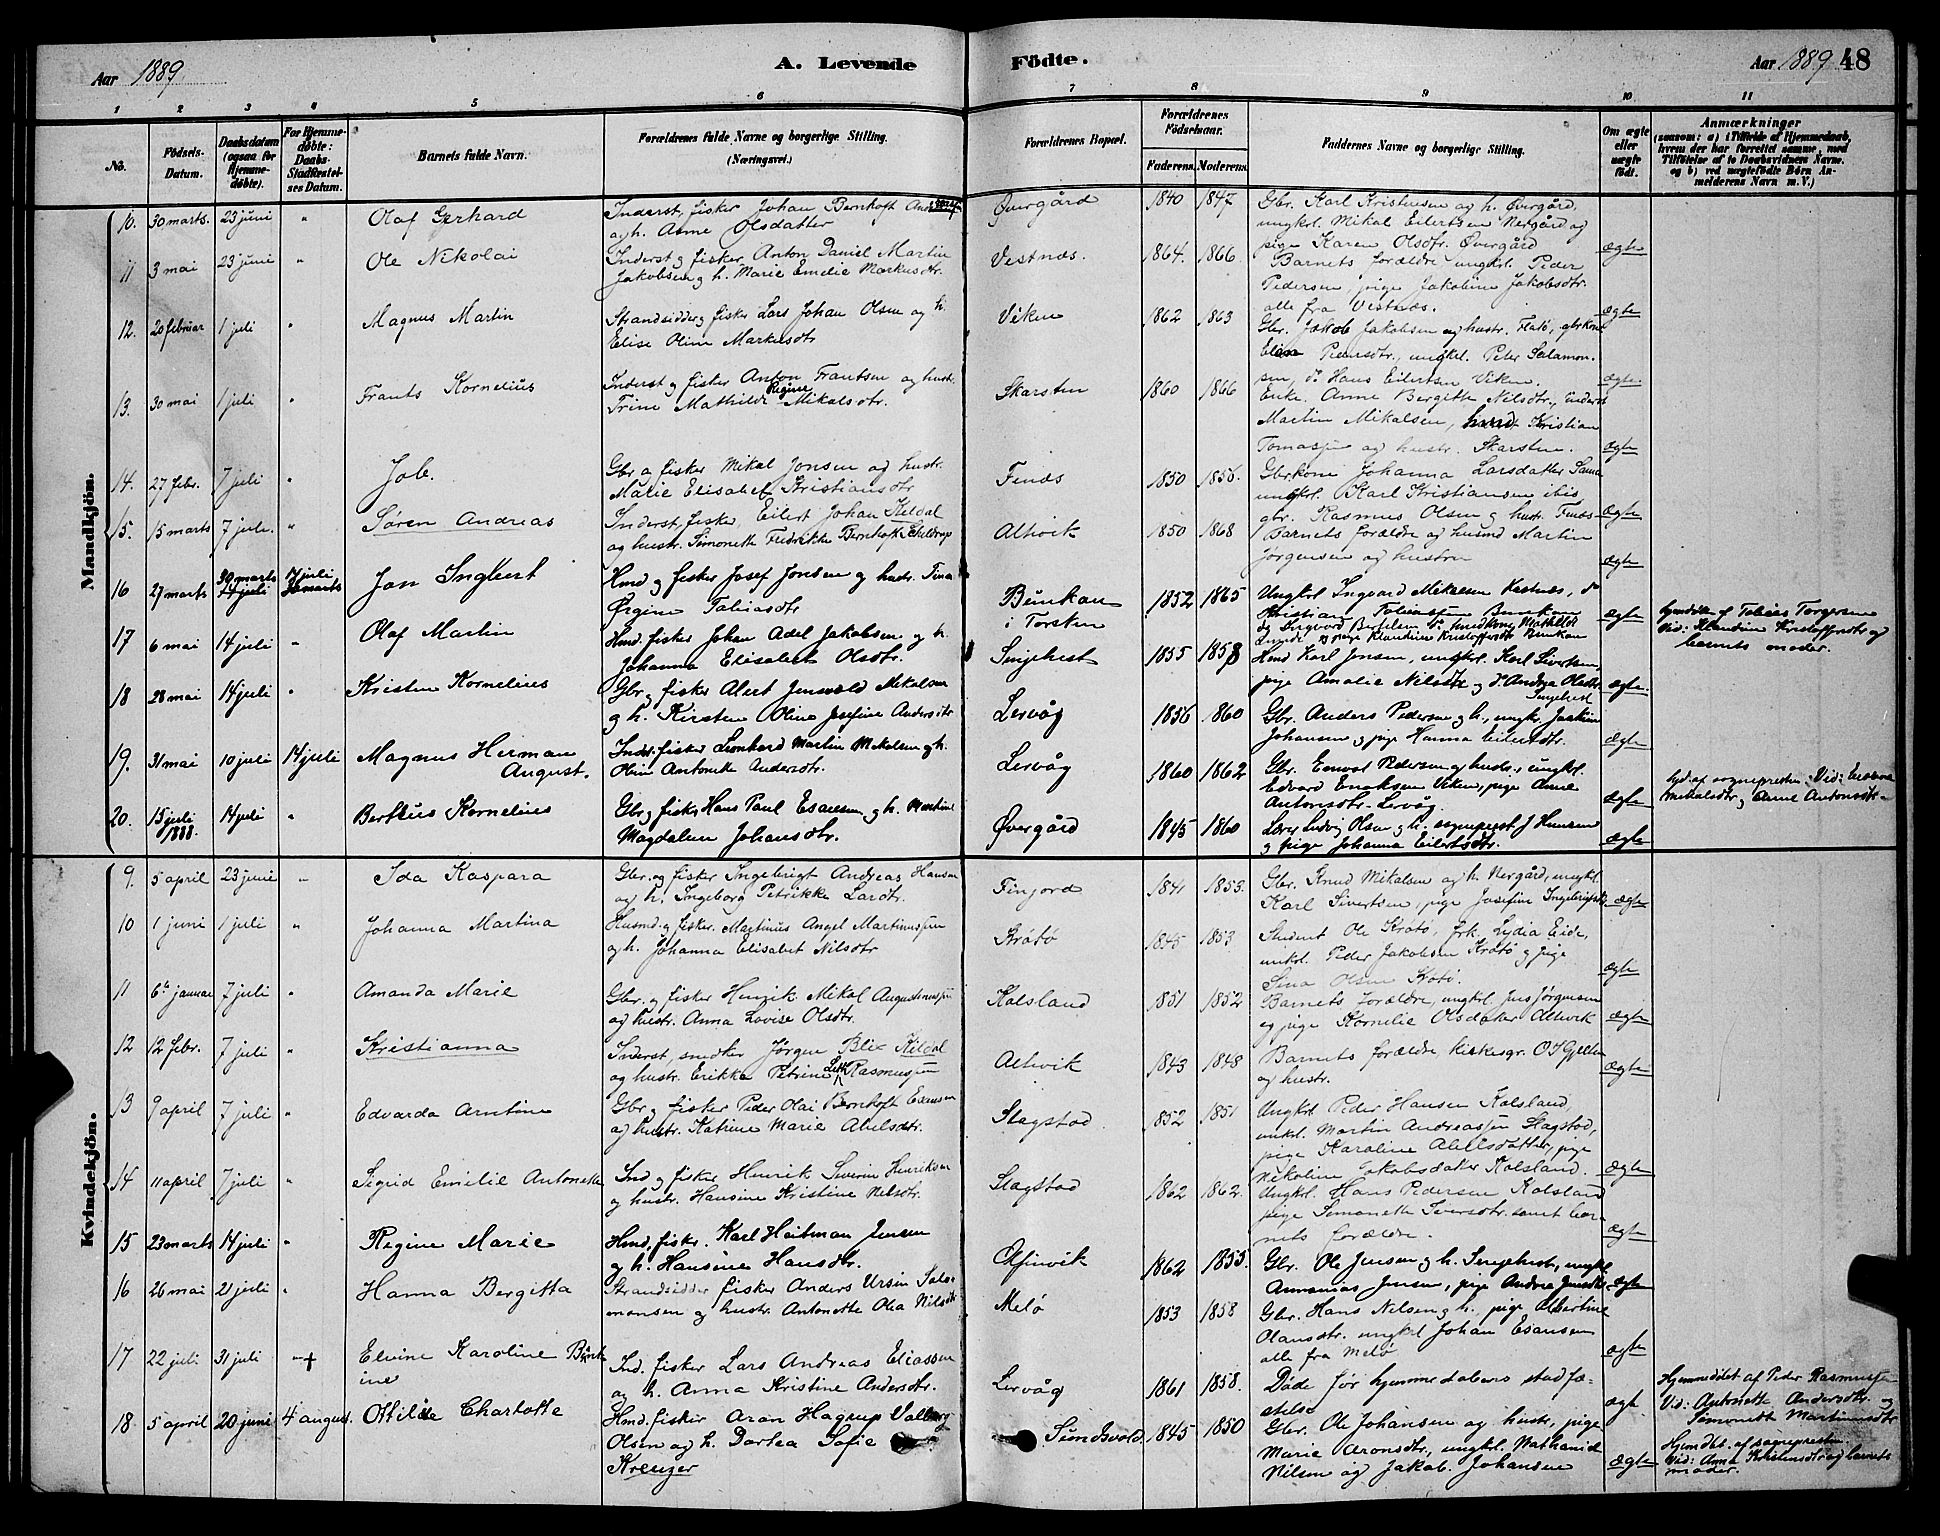 Aar 1889
A. Levende
Födte.
Aar 1889 48
1 2 3 4 5 6 7 8 9 10 11
No.
Födsels-Datum.
Daabsdatum (ogsaa for Hjemmedöbte).
For Hjemmedöbte: Daabs-Stadfæstelses Datum.
Barnets fulde Navn.
Forældrenes fulde Navne og borgerlige Stilling. (Næringsvei.)
Forældrenes Bopæl.
Forældrenes Födselsaar.
Faderens. Moderens.
Faddernes Navne og borgerlige Stilling.
Om ægte eller uægte födt.
Anmærkninger (saasom: a) i Tilfælde af Hjemmedaab, hvem der har forrettet samme, med Tilföielse af to Daabsvidners Navne, og b) ved uægtefödte Börn Anmelderens Navn m. V.)
Mandkjön.
10. 30 marts. 23 juni " Olaf Gerhard
Inderst, fisker Johan Bernhoft
og h. Anne Olsdatter
Øvergård 1840 1847
Gbr. Karl Kristensen og h. Øvergård,
ungkl. Mikal Eilertsen Nergård og
pige Karen Olsdtr. Øvergård ægte
11 3 mai 23 juni " Ole Nikolai
Inderst og fisker Anton Daniel Martin
Jakobsen og h. Marie Emelie Markusdtr.
Vestnæs. 1864. 1866
Barnets forældre, ungkl. Peder
Pedersen, pige Jakobine Jakobsdtr.
alle fra Vestnæs. ægte
12. 20 februar 1 juli " Magnus Martin
Strandsidder og fisker Lars Johan Olsen og h.
Elise Oline Markusdtr
Viken 1862 1863
Gbr. Jakob Jakobsen og hustr. Flatö, gbrkone
Pedersdtr., ungkl. Peder Salamon-
sen, do Hans Eilertsen Viken. ægte.
13. 30 mai 1 juli " Frants Kornelius
Inderst og fisker Anton Frantsen og hustr.
Trine Mathilde Regine Mikalsdtr.
Skarsten 1860 1866
Enke. Anne Bergitte Nilsdtr., inderst
Martin Mikalsen, Kristian
Tomassen og hustr. Skarsten. ægte
14. 27 febr. 7 juli " Job.
Gbr og fisker Mikal Jonsen og hustr.
Marie Elisabet Kristiansdtr
Finæs 1850 1856.
Gbrkone Johanna Larsdatter
ungkl. Karl Kristiansen ibid,
gbr. Rasmus Olsen og hustr. Finæs ægte
15. 15 marts 7 juli. " Søren Andreas
Inderst, fisker Eilert Johan Kildal
og hustr. Simonette Fredrikke Bernhoft Schieldrup
Altevik 1850 1868
Barnets forældre og husmd Martin
Jørgensen og hustru ægte
16 27 marts 30 marts 14 juli Jon Ingbert
Hmd og fisker Josef Jonsen og hustr. Tina
Ørgine Tobiasdtr
Bunkan i Torsken 1852 1865
Ungkl Ingvard Mikalsen Kastnæs, do
Kristian Tobiassen Bunkan
pige Klaudine Kristoffersdtr Bunkan ægte
Hjemdøbt af Tobias Torgersen
Vid: Klaudine Kristoffersdtr og
barnets moder.
17 6 mai 14 juli " Olaf Martin
Hmd. fisker Johan Adel Jakobsen og h.
Johanna Elisabet Olsdtr.
Singelvest 1855 1858
Hmd Karl Jensen, ungkl. Karl Sivertsen,
pige Amalie Nilsdtr og do Andrea Olsdtr. ægte.
18 28 mai 14 juli " Kristen Kornelius
Gbr og fisker Alert Jenvold Mikalsen
og h. Kirsten Oline Josefine Andersdtr
Lervåg 1856 1860
Gbr. Anders Pedersen og h., ungkl. Joakim
Johansen og pige Hanna Eilertsdtr. ægte
19. 31 mai 10 juli 14 juli Magnus Herman
August.
Inds. fisker Leonhard Martin Mikalsen og h.
Oline Antonette Andersdtr.
Lervåg 1860 1862
Gbr. Enevol Pedersen og hustr., ungkl.
Edvard Enoksen Viken, pige Anne
Antonsdtr. Lervåg. ægte
Hjd. af sognepresten. Vid:
Mikalsdtr og Anne Antonsdtr
20. 15 juli 1888. 14 juli " Bertéus Kornelius
Gbr og fisker Hans Paul Esaiesen og h. Martine
Magdalene Johansdtr.
Øvergård 1845 1860
Lærer Ludvig Olsen og h. sogneprest J Hansen
og pige Johanna Eilertsdtr. ægte
Kvindekjön.
9. 5 april 23 juni " Ida Kaspara
Gbr. og fisker Ingebrigt Andreas Hansen
og h. Ingeborg Petrikke Larsdtr.
Finjord 1841 1853.
Gbr. Knud Mikalsen og h. Nergård, ungkl
Karl Sivertsen, pige Josefine Ingebrigtsdtr. ægte
10 1 juni 1 juli " Johanna Martina
Husmd. og fisker. Martinus Angel Martinussen
og h. Johanna Elisabet Nilsdtr
Kråtö 1845 1853
Student Ole Kråtö, frk. Lydia Eide,
unkl. Peder Jakobsen Kråtö og pige
Sina Olsen Kråtö. ægte
11 6te januar 7 juli " Amanda Marie
Gbr. og fisker Henrik Mikal Augustinussen
og hustr. Anna Lovise Olsdtr.
Kalsland 1851 1852
Barnets forældre, ungkl. Jens Jörgensen
og pige Kornelie Olsdatter Altevik ægte
12 12 febr. 7 juli " Kristianna
Inderst, snedker Jørgen Blix Kildal
og hustr. Erikka Petrine Rasmussen
Altevik 1843 1848
Barnets forældre, kirkesgr. O J Gjellen
og hustr. ægte
13 9 april 7 juli " Edvarda Arntine
Gbr. og fisker Peder Olai Bernhoft Esaiesen
og hustr. Katrine Marie Abelsdtr.
Slagstad 1852 1851
Ungkl Peder Hansen Kalsland
unkl. Martin Andreassen Slagstad,
pige Karoline Abelsdatter, pige
Nikoline Jakobsdatter Kalsland. ægte
14 11 april 7 juli " Sigrid Emilie Antonette
Ind og fisker Henrik Severin Henriksen
og hustr. Hansine Kristine Nilsdtr.
Slagstad 1862 1862.
Ungkl. Hans Pedersen Kalsland
pige Simonette Iversdtr. samt bar-
nets forældre. ægte
15 23 marts 14 juli " Regine Marie
Hmd. fisker. Karl Heitman Jensen
og h. Hansine Hansdtr.
1862 1855.
Gbr. Ole Jensen og h. Singelvest, ungkl.
Annanias Jensen, pige Andrea Jensdtr. ægte
16 26 mai 21 juli " Hanna Bergitta
Strandsidder fisker Anders Ursin Salo-
monsen og hustr. Antonette Olea Nilsdtr
Melö 1853 1858
Gbr. Hans Nilsen og h. pige Albertine
Olausdtr. ungkl Johan Esaiesen
alle fra Melö ægte
17 22 juli 31 juli " + Elvine Karoline Bernt-
ine
Ind. fisker Lars Andreas Eliassen
og h. Anna Kristine Andersdtr.
Lervåg 1861 1858.
Döde för hjemmedabens stadfæ-
stelse ægte
Hjemmdöbt af Peder Rasmussen
Vid: Antonette Andersdtr. og
Simonette Martinusdtr
18. 5 april 20 juni 4 august. Ottilde Charlotte
Hmd. fisker Aron Hagrup Valberg
Olsen og h. Dortea Sofie
Kreutzer
Sundsvold. 1845 1850
Gbr. Ole Johansen og hustr, pige
Marie Aronsdtr., ungkl. Nathaniel
Nilsen og Jakob. Johansen ægte
Hjemdbt. af sognepresten
Vid: Anna Kristensdtr og barnets
moder.